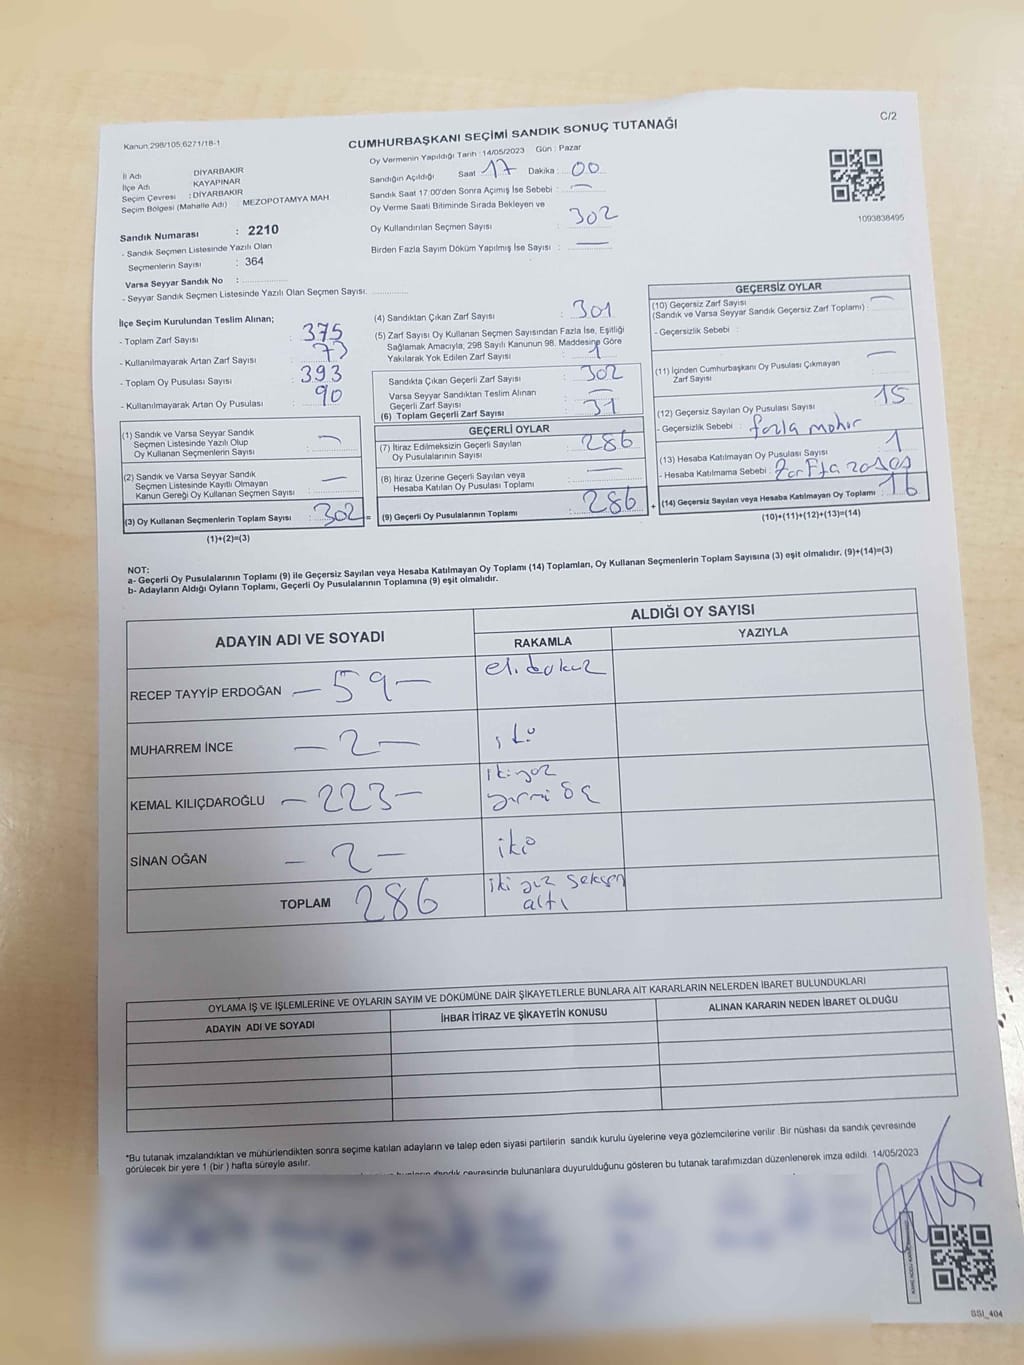 C/2
Kanun 298/105,6271/18-1
CUMHURBAŞKANI SEÇİMİ SANDIK SONUÇ TUTANAĞI
Oy Vermenin Yapıldığı Tarih : 14/05/2023 Gün : Pazar
İl Adı DİYARBAKIR
İlçe Adı KAYAPINAR
Seçim Çevresi : DİYARBAKIR
Seçim Bölgesi (Mahalle Adı) : MEZOPOTAMYA MAH
Sandığın Açıldığı Saat : 17 Dakika : 00
Sandık Saat 17:00'den Sonra Açımış İse Sebebi : —
Oy Verme Saati Bitiminde Sırada Bekleyen ve
Oy Kullandırılan Seçmen Sayısı : 302
Birden Fazla Sayım Döküm Yapılmış İse Sayısı : —
1093838495
Sandık Numarası : 2210
- Sandık Seçmen Listesinde Yazılı Olan
Seçmenlerin Sayısı : 364
Varsa Seyyar Sandık No :
- Seyyar Sandık Seçmen Listesinde Yazılı Olan Seçmen Sayısı.
İlçe Seçim Kurulundan Teslim Alınan;
- Toplam Zarf Sayısı : 375
- Kullanılmayarak Artan Zarf Sayısı : 73
- Toplam Oy Pusulası Sayısı : 393
- Kullanılmayarak Artan Oy Pusulası : 90
(1) Sandık ve Varsa Seyyar Sandık
Seçmen Listesinde Yazılı Olup
Oy Kullanan Seçmenlerin Sayısı : —
(2) Sandık ve Varsa Seyyar Sandık
Seçmen Listesinde Kayıtlı Olmayan
Kanun Gereği Oy Kullanan Seçmen Sayısı : —
(3) Oy Kullanan Seçmenlerin Toplam Sayısı : 302 =
(1)+(2)=(3)
(4) Sandıktan Çıkan Zarf Sayısı : 301
(5) Zarf Sayısı Oy Kullanan Seçmen Sayısından Fazla İse, Eşitliği
Sağlamak Amacıyla, 298 Sayılı Kanunun 98. Maddesine Göre
Yakılarak Yok Edilen Zarf Sayısı : 1
Sandıkta Çıkan Geçerli Zarf Sayısı : 302
Varsa Seyyar Sandıktan Teslim Alınan
Geçerli Zarf Sayısı : —
(6) Toplam Geçerli Zarf Sayısı : 31
GEÇERLİ OYLAR
(7) İtiraz Edilmeksizin Geçerli Sayılan
Oy Pusulalarının Sayısı : 286
(8) İtiraz Üzerine Geçerli Sayılan veya
Hesaba Katılan Oy Pusulası Toplamı : —
(9) Geçerli Oy Pusulalarının Toplamı : 286 +
GEÇERSİZ OYLAR
(10) Geçersiz Zarf Sayısı : —
(Sandık ve Varsa Seyyar Sandık Geçersiz Zarf Toplamı)
- Geçersizlik Sebebi :
(11) İçinden Cumhurbaşkanı Oy Pusulası Çıkmayan
Zarf Sayısı : —
(12) Geçersiz Sayılan Oy Pusulası Sayısı : 15
- Geçersizlik Sebebi : fazla mohur
(13) Hesaba Katılmayan Oy Pusulası Sayısı : 1
- Hesaba Katılmama Sebebi :
(14) Geçersiz Sayılan veya Hesaba Katılmayan Oy Toplamı : 16
(10)+(11)+(12)+(13)=(14)
NOT:
a- Geçerli Oy Pusulalarının Toplamı (9) ile Geçersiz Sayılan veya Hesaba Katılmayan Oy Toplamı (14) Toplamları, Oy Kullanan Seçmenlerin Toplam Sayısına (3) eşit olmalıdır. (9)+(14)=(3)
b- Adayların Aldığı Oyların Toplamı, Geçerli Oy Pusulalarının Toplamına (9) eşit olmalıdır.
ADAYIN ADI VE SOYADI
ALDIĞI OY SAYISI
RAKAMLA YAZIYLA
RECEP TAYYİP ERDOĞAN — 59 — eli dokuz
MUHARREM İNCE — 2 — iki
KEMAL KILIÇDAROĞLU — 223 — ikiyüz
yirmi üç
SİNAN OĞAN — 2 — iki
TOPLAM 286 iki yüz seksen
altı
OYLAMA İŞ VE İŞLEMLERİNE VE OYLARIN SAYIM VE DÖKÜMÜNE DAİR ŞİKAYETLERLE BUNLARA AİT KARARLARIN NELERDEN İBARET BULUNDUKLARI
ADAYIN ADI VE SOYADI İHBAR İTİRAZ VE ŞİKAYETİN KONUSU ALINAN KARARIN NEDEN İBARET OLDUĞU
*Bu tutanak imzalandıktan ve mühürlendikten sonra seçime katılan adayların ve talep eden siyasi partilerin sandık kurulu üyelerine veya gözlemcilerine verilir .Bir nüshası da sandık çevresinde
görülecek bir yere 1 (bir ) hafta süreyle asılır.
sandık çevresinde bulunanlara duyurulduğunu gösteren bu tutanak tarafımızdan düzenlenerek imza edildi. 14/05/2023
SSİ_404